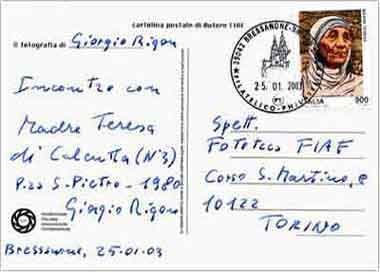 cartolina postale di Autore FIAF
© fotografia di Giorgio Rigon
Incontro con
Madre Teresa
di Calcutta (N°3)
P.za S. Pietro - 1980
Giorgio Rigon
Bressanone, 25-01-03
39042 BRESSANONE
25.01.2003
FILATELICO
ITALIA
900
Spett.
Fototeca FIAF
Corso S. Martino, 8
10122
TORINO